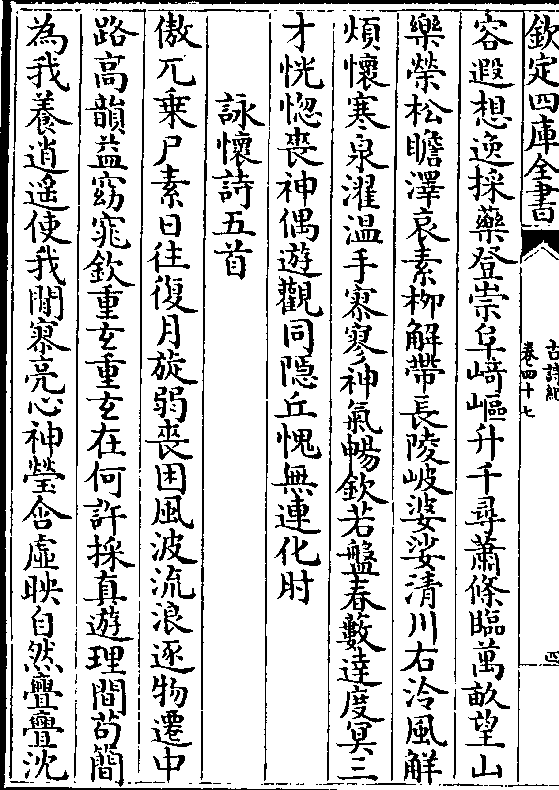 欽定四庫全書
古詩紀
卷四十七
四
容遐想逸採藥登崇阜﨑嶇升千尋蕭條臨萬畝望山
樂榮松瞻澤哀素柳解帶長陵岐婆娑清川右泠風解
煩懷寒泉濯温手寥寥神氣暢欽若盤春藪達度冥三
才恍惚喪神偶遊觀同隠丘愧無連化肘
詠懷詩五首
傲兀乗尸素日往復月旋弱喪困風波流浪逐物遷中
路高韻益窈窕欽重玄重玄在何許採真遊理間苟簡
為我養逍遥使我閒寥亮心神瑩含虛映自然亹亹沈